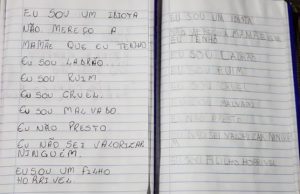 EU SOU UM IDIOTA
NÃO MEREÇO A
MAMÃE QUE EU TENHO
EU SOU LADRÃO...
EU SOU RUIM
EU SOU CRUEL.
EU SOU MALVADO
EU NÃO PRESTO
EU NÃO SEI VALORIZAR
NINGUÉM.
EU SOU UM FILHO
HORRIVEL.
EU SOU UM IDIOTA
EU SOU LADRÃO
RUIM
CRUEL
MALVADO
PRESTO
SEI VALORIZAR NINGUÉM
FILHO HORRIVEL